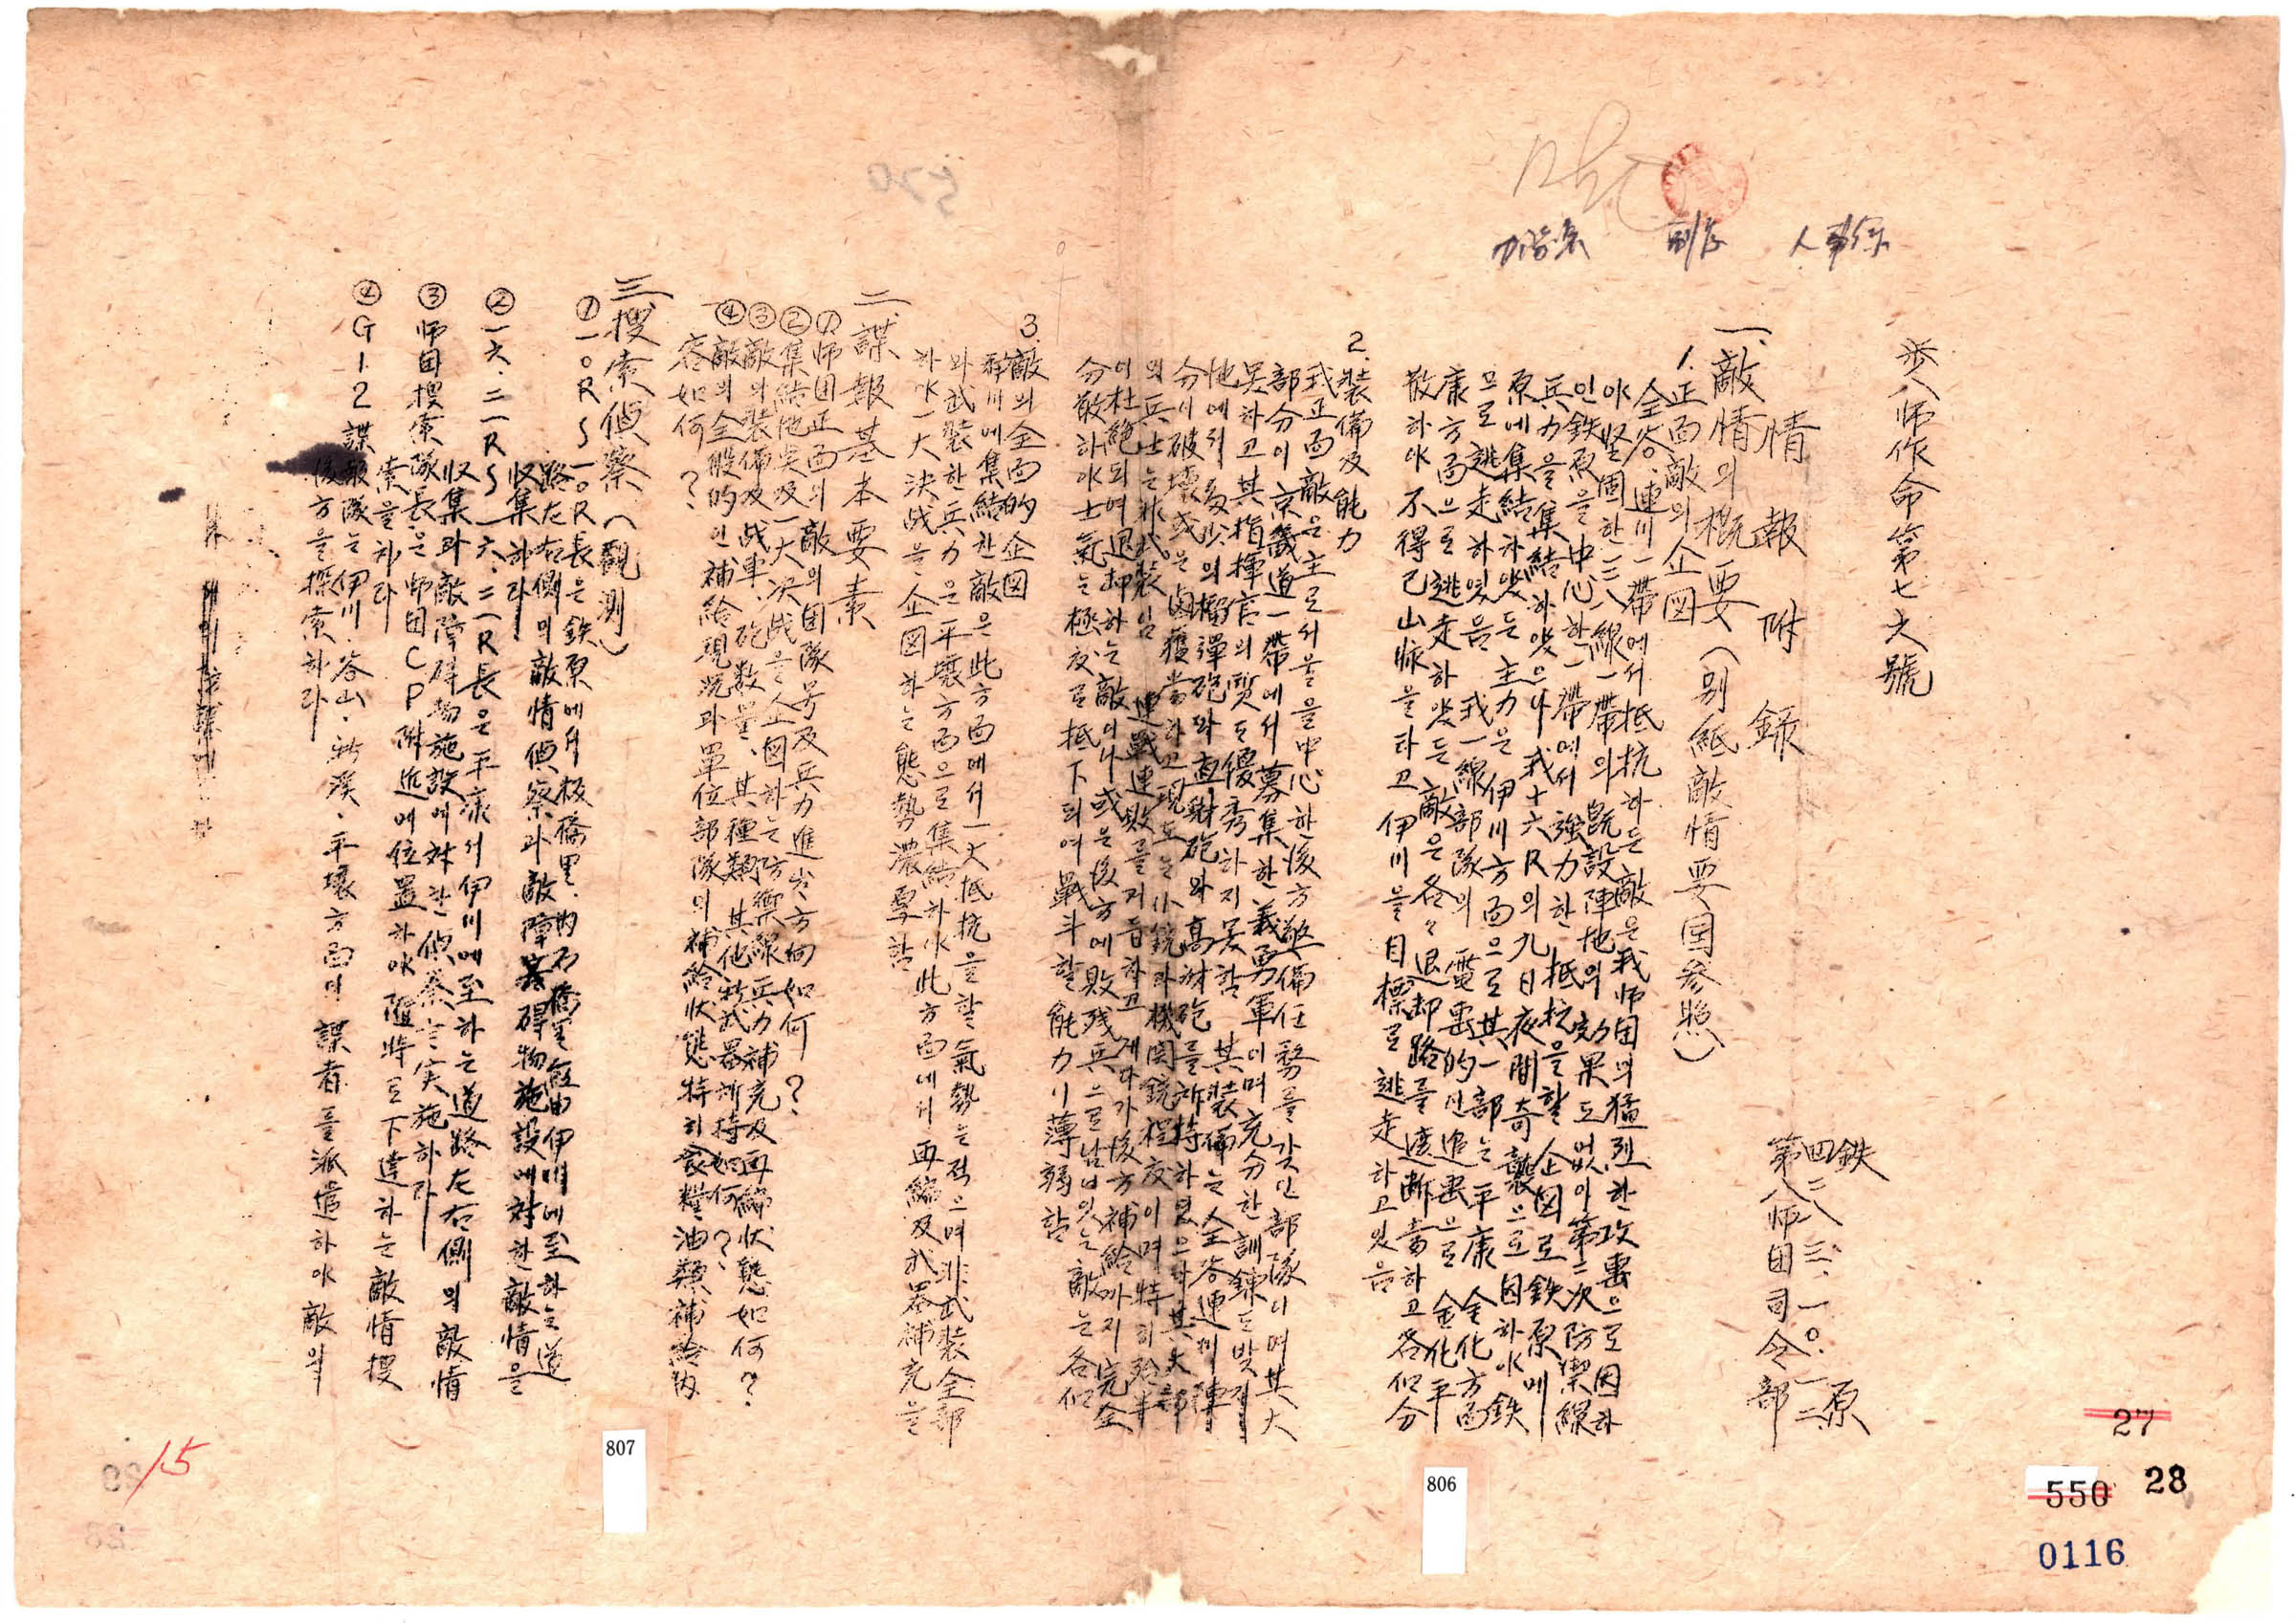 步八師作命第七六號
情報附錄
鉄原
四二八三.一○.一二
第八師団司令部
一、敵情의概要(別紙敵情要図参照)
1.正面敵의企図
全谷.連川一帶에서抵抗하든敵은我師団의猛烈한攻擊으로因하
야坚固한三八線一帶의既設陣地의効果도없이第二次防禦線
인鉄原을中心한一帶에서强力한抵抗을할企図로鉄原에
兵力을集結하였으나我十六R의九日夜間奇襲으로因하야鉄
原에集結하였든主力은伊川方面으로其一部는平康金化方面
으로逃走하였음我一線部隊의電擊的인追擊으로金化平
康方面으로逃走하였든敵은各々退却路를遮断當하고各個分
散하야不得已山脉을타고伊川을目標로逃走하고있음
2.装備及能力
我正面敵은主로서울을中心한後方警備任務를갖인部隊이며其大
部分이京畿道一帶에서募集한義勇軍이며充分한訓鍊도받지
못하고其指揮官의質도優秀하지못함其装備는全谷連川陣
地에서多少의榴彈砲와直射砲와高射砲를所持하였으나其大部
分이破壞或은鹵獲當하고現在는小銃과機関銃程度이며特히殆半
의兵士는非武装임連戰連敗를거듭하고게다가後方補給까지完全
이杜絶되여退却하는敵이나或은後方에敗残兵으로남어있는敵은各個
分散하야士氣는極度로抵下되여戰斗할能力이薄弱함
3.敵의全面的企図
伊川에集結한敵은此方面에서一大抵抗을할氣勢는적으며非武装全部
와武装한兵力은平壤方面으로集結하야此方面에서再編及武器補充을
하야一大決战을企図하는態勢濃厚함
二、諜報基本要素
①师団正面의敵의团隊号及兵力進出方向如何?
②集結地点及一大决战을企図하는防禦線兵力補充及再編狀態如何?
③敵의装備及战車、砲数量、其種類其他特武器所持如何?
④敵의全般的인補給現況과單位部隊의補給狀態特히食糧、油類補給內
容如何?
三搜索偵察(觀測)
①一○RS一○R長은鉄原에서板橋里.內石橋里經由伊川에至하는道
路左右側의敵情偵察과敵障碍物施設에対한敵情을
収集하라
②一六.二一RS一六.二一R長은平康서伊川에至하는道路左右側의敵情
収集과敵障碍物施設에対한偵察을实施하라
③师团搜索隊長은師団CP附進에位置하야隨時로下達하는敵情搜
索을하라
④G12諜報隊는伊川.谷山.新溪.平壤方面의諜者를派遣하야敵의
後方을探索하라
520
15
807
806
27
550
28
0116